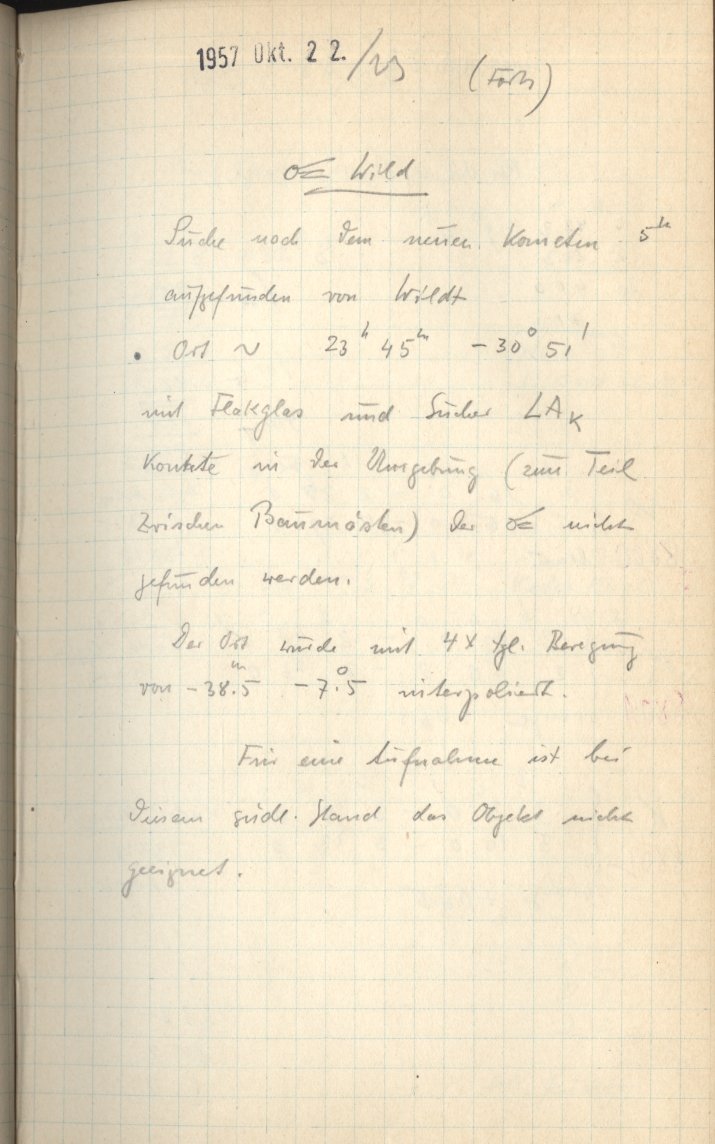 1957 Okt. 22./23
☄ Wild
Suche nach dem neuen Kometen 5ᵐ
aufgefunden von Wildt
Ort ~ 23ʰ 45ᵐ -30° 51'
mit Flakglas und Sucher LAK
Konnte in der Umgebung (zum Teil
zwischen Baumästen) der ☄ nicht
gefunden werden.
Der Ort wurde mit 4x tgl. Bewegung
von -38ᵐ.5 -7°.5 interpoliert.
Für eine Aufnahme ist bei
diesem südl. Stand das Objekt nicht
geeignet.